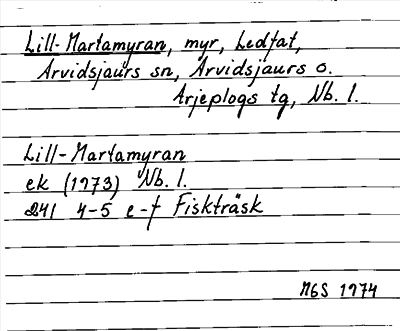 Lill-Martamyran, myr, Ledfat,
Arvidsjaurs sn, Arvidsjaurs o.
Arjeplogs tg, Nb. l.
Lill-Martamyran
ek (1973) Nb. l.
241 4-5 e-f Fiskträsk
MGS 1974